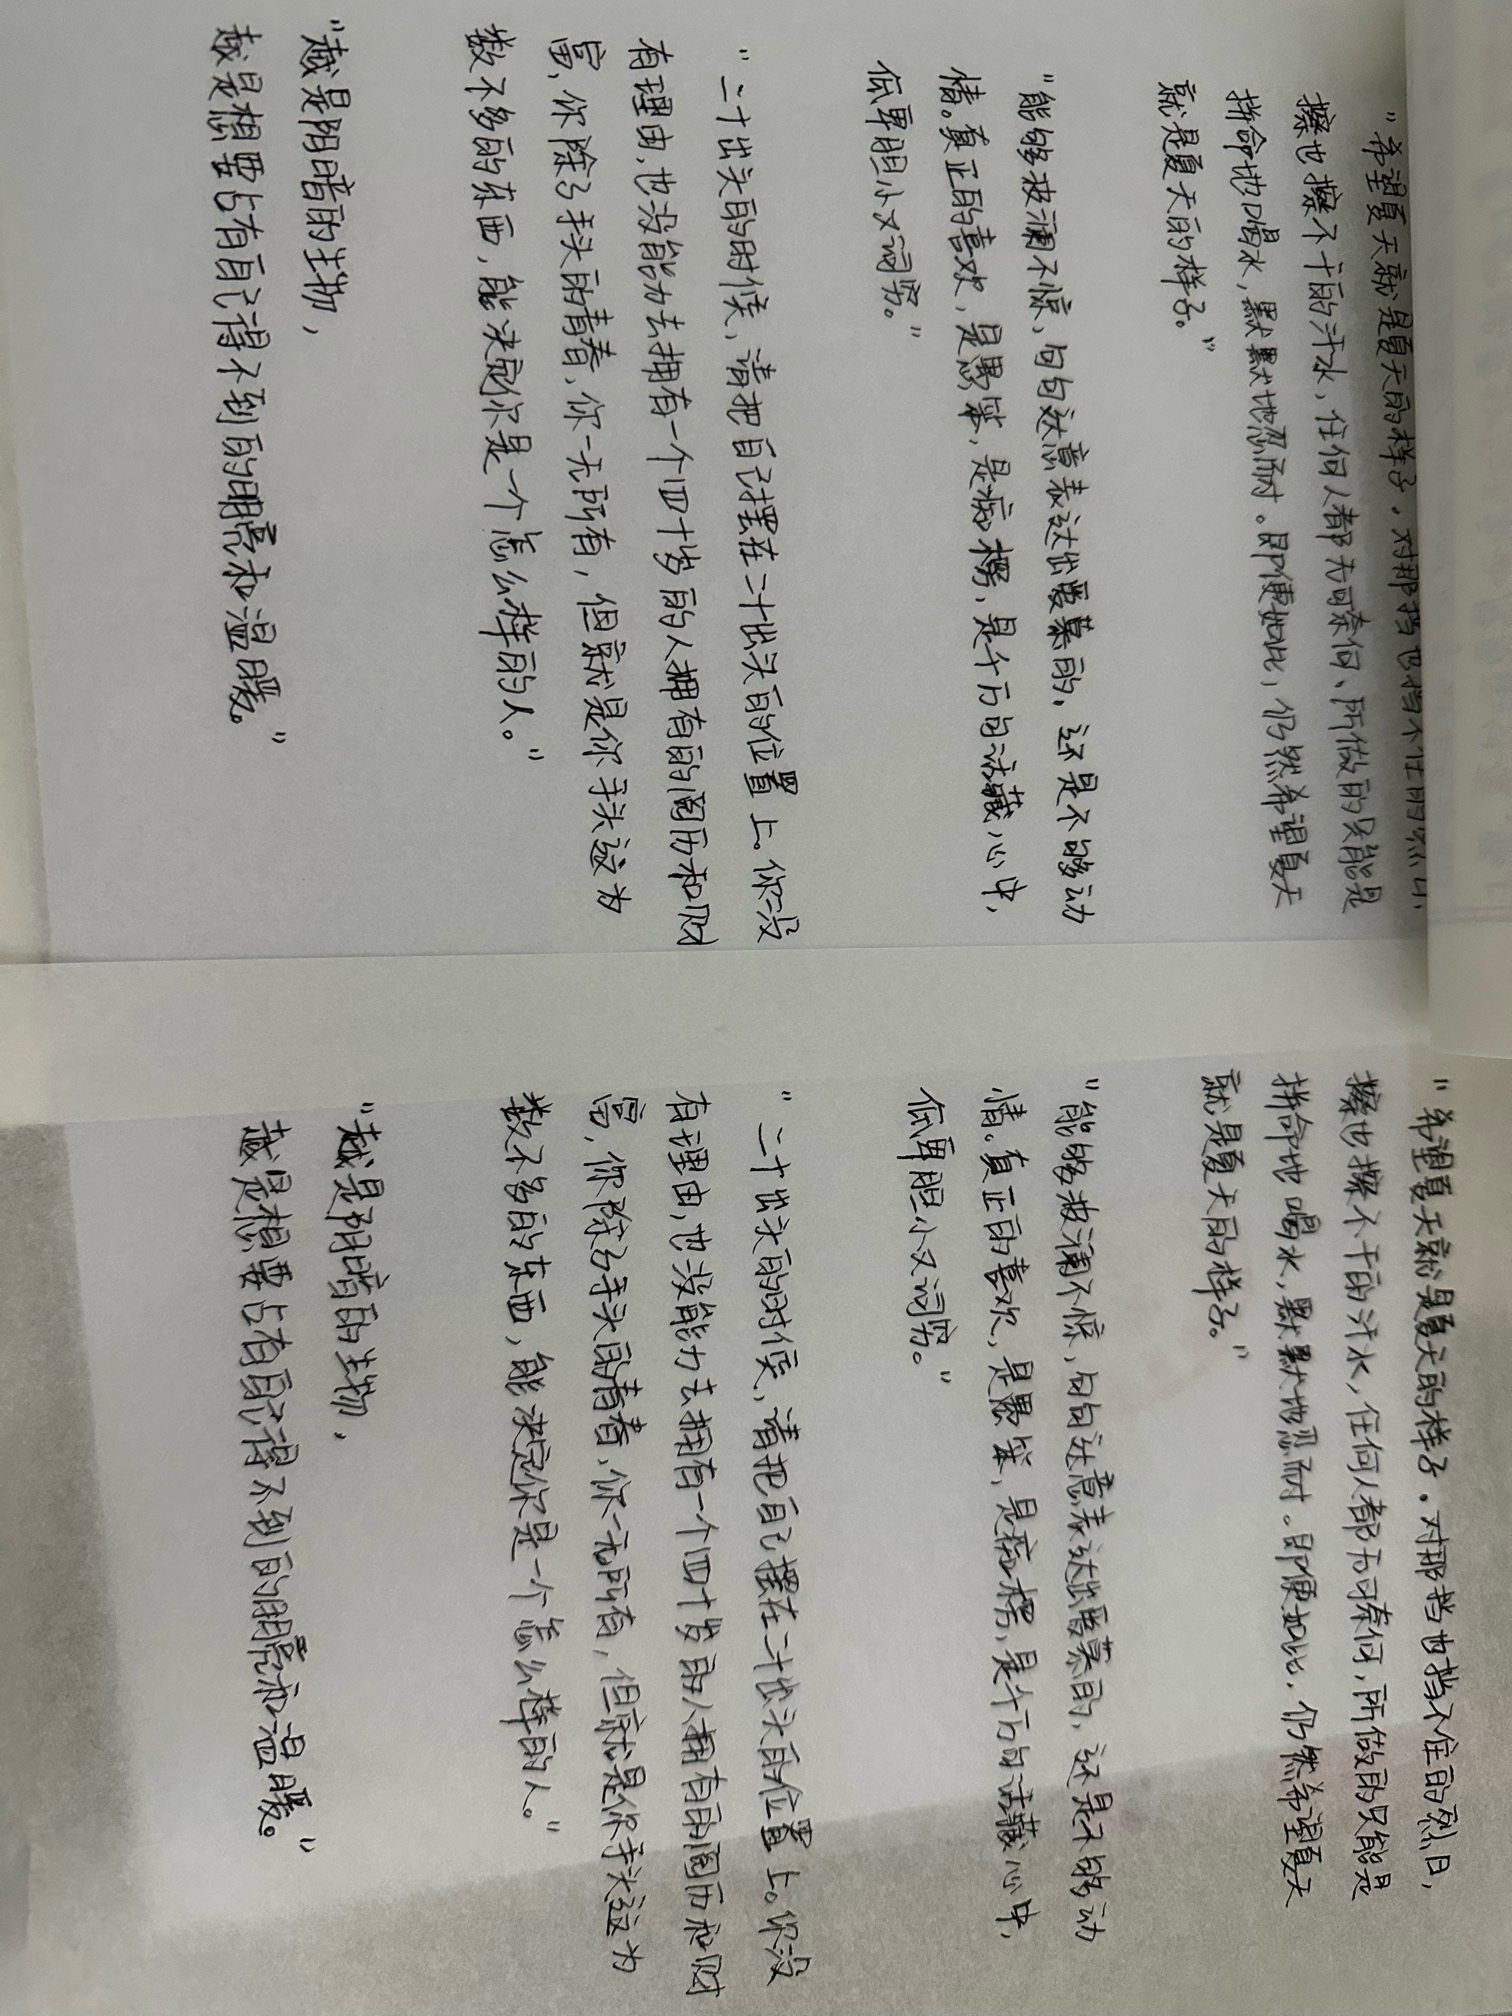 “希望夏天就是夏天的样子。对那挡也挡不住的烈日，
擦也擦不干的汗水，任何人都无可奈何、所做的只能是
拼命地喝水，默默地忍耐。即便如此，仍然希望夏天
就是夏天的样子。”
“能够波澜不惊，句句达意表达出爱慕的，还是不够动
情。真正的喜欢，是愚笨，是痴楞，是千万句话藏心中，
低卑胆小又词穷。”
“二十出头的时候，请把自己摆在二十出头的位置上。你没
有理由，也没能力去拥有一个四十岁的人拥有的阅历和财
富，你除了手头的青春，你一无所有，但就是你手头这为
数不多的东西，能决定你是一个怎么样的人。”
“越是阴暗的生物，
越是想要占有自己得不到的明亮和温暖。”
“希望夏天就是夏天的样子。对那挡也挡不住的烈日，
擦也擦不干的汗水，任何人都无可奈何，所做的只能是
拼命地喝水，默默地忍耐。即便如此，仍然希望夏天
就是夏天的样子。”
“能够波澜不惊，句句达意表达出爱慕的，还是不够动
情。真正的喜欢，是愚笨，是痴楞，是千万句话藏心中，
低卑胆小又词穷。”
“二十出头的时候，请把自己摆在二十出头的位置上。你没
有理由，也没能力去拥有一个四十岁的人拥有的阅历和财
富，你除了手头的青春，你一无所有，但就是你手头这为
数不多的东西，能决定你是一个怎么样的人。”
“越是阴暗的生物，
越是想要占有自己得不到的明亮和温暖。”